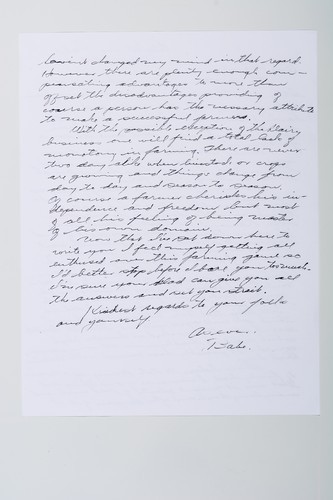 haven't changed my mind in that regard.
However there are plenty enough com-
pensating advantages to more than
offset the disadvantages providing of
course a person has the necessary attributes
to make a successful farmer.
With the possible exception of the dairy
business one will find a total lack of
monotony in farming. There are never
two days alike when livestock or crops
are growing and things change from
day to day and season to season.
Of course a farmer cherishes his in-
dependence and freedom but most
of all his feeling of being master
of his own domain.
Now that I've sat down here to
write you I find myself getting all
enthused over this farming game so
I'd better stop before I bore you too much.
I'm sure your Dad can give you all
the answers and set you strait.
Kindest regards to your folks
and yourself
As ever
Babe.